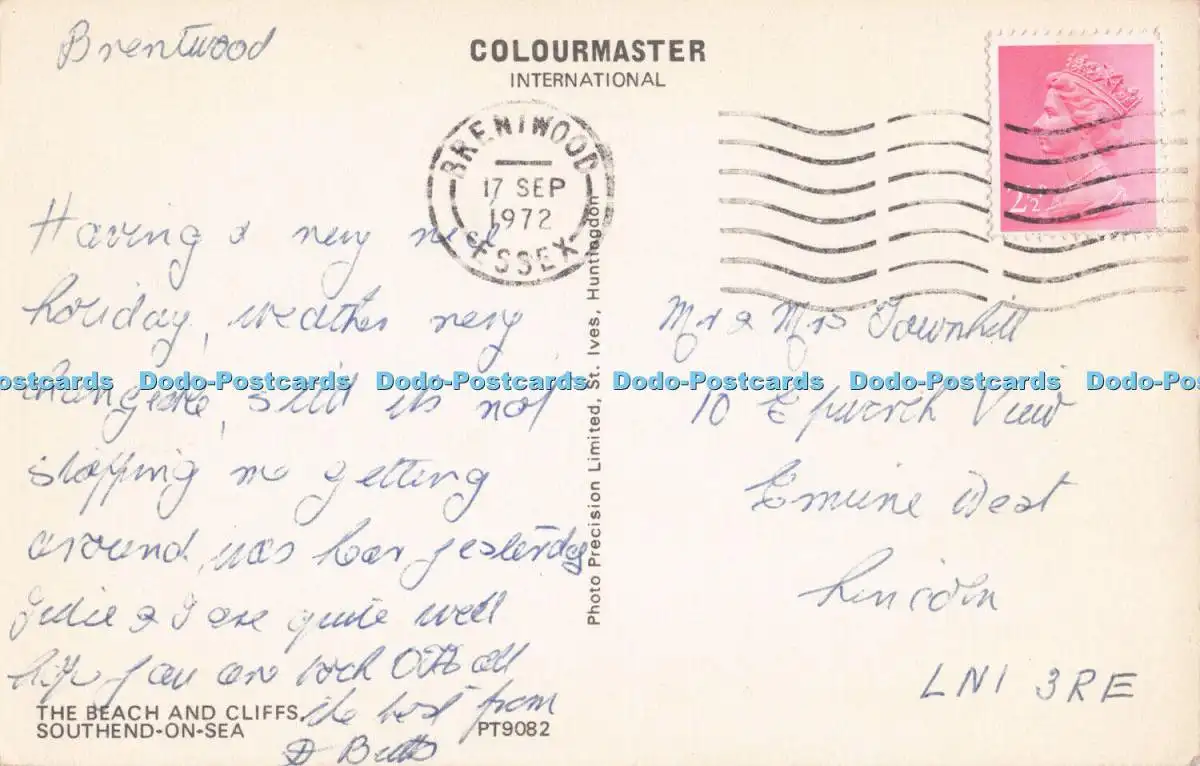 Brentwood
COLOURMASTER
INTERNATIONAL
BRENTWOOD
17 SEP
1972
ESSEX
2½
Having a very nice
holiday, weather very
changeable, still its not
stopping me getting
around, was here yesterday
& I are quite well
hope you are both OK all
the best from
Photo Precision Limited, St. Ives, Huntingdon
Mr & Mrs Townhill
10 Epworth View
Ermine West
Lincoln
LN1 3RE
Dodo-Postcards Dodo-Postcards Dodo-Postcards Dodo-Postcards Dodo-Postcards Dodo-Postcards
THE BEACH AND CLIFFS,
SOUTHEND-ON-SEA
PT9082